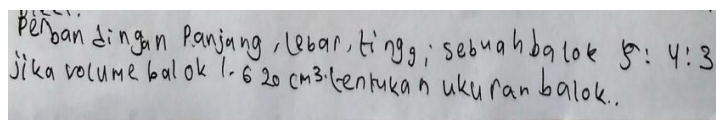 Perbandingan Panjang, lebar, tinggi sebuah balok 5: 4:3
jika volume balok 1.620 cm³. tentukan ukuran balok..